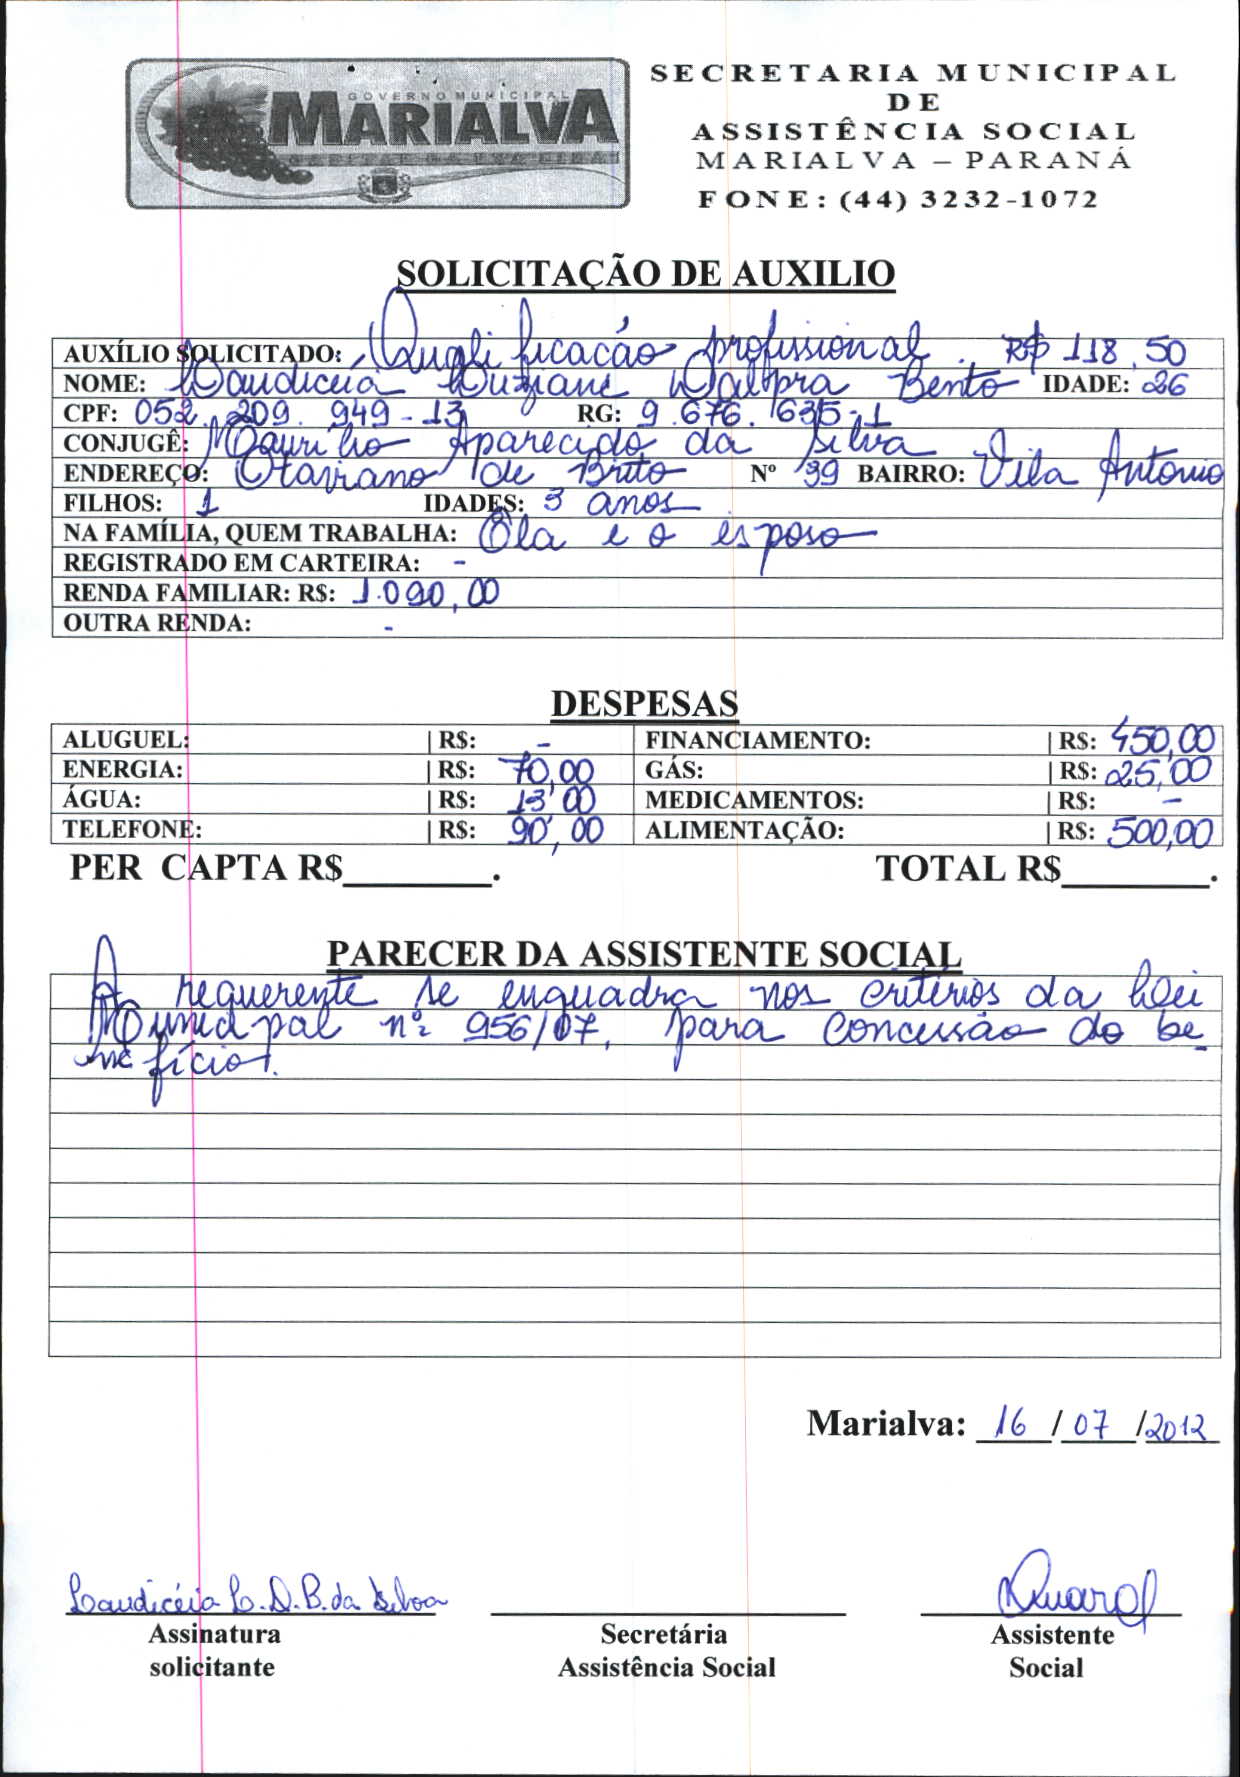 GOVERNO MUNICIPAL
MARIALVA
CAPITAL DA UVA FINA
SECRETARIA MUNICIPAL
DE
ASSISTÊNCIA SOCIAL
MARIALVA – PARANÁ
FONE: (44) 3232-1072
SOLICITAÇÃO DE AUXILIO
AUXÍLIO SOLICITADO: Qualificação profissional. R$ 118,50
NOME: Laudicéia Luziane Dalpra Bento IDADE: 26
CPF: 052.209.949-13 RG: 9.676.635-1
CONJUGÊ: Maurilho Aparecido da Silva
ENDEREÇO: Otaviano de Brito Nº 39 BAIRRO: Vila Antonio
FILHOS: 1 IDADES: 3 anos
NA FAMÍLIA, QUEM TRABALHA: Ela e o esposo
REGISTRADO EM CARTEIRA: -
RENDA FAMILIAR: R$: 1.090,00
OUTRA RENDA: -
DESPESAS
ALUGUEL: | R$: - FINANCIAMENTO: | R$: 450,00
ENERGIA: | R$: 70,00 GÁS: | R$: 25,00
ÁGUA: | R$: 13,00 MEDICAMENTOS: | R$: -
TELEFONE: | R$: 90,00 ALIMENTAÇÃO: | R$: 500,00
PER CAPTA R$________. TOTAL R$________.
PARECER DA ASSISTENTE SOCIAL
A requerente se enquadra nos critérios da Lei
Municipal nº 956/07, para concessão do be-
nefício.
Marialva: 16/07/2012
Laudicéia L. D. B. da Silva
Assinatura Secretária Assistente
solicitante Assistência Social Social